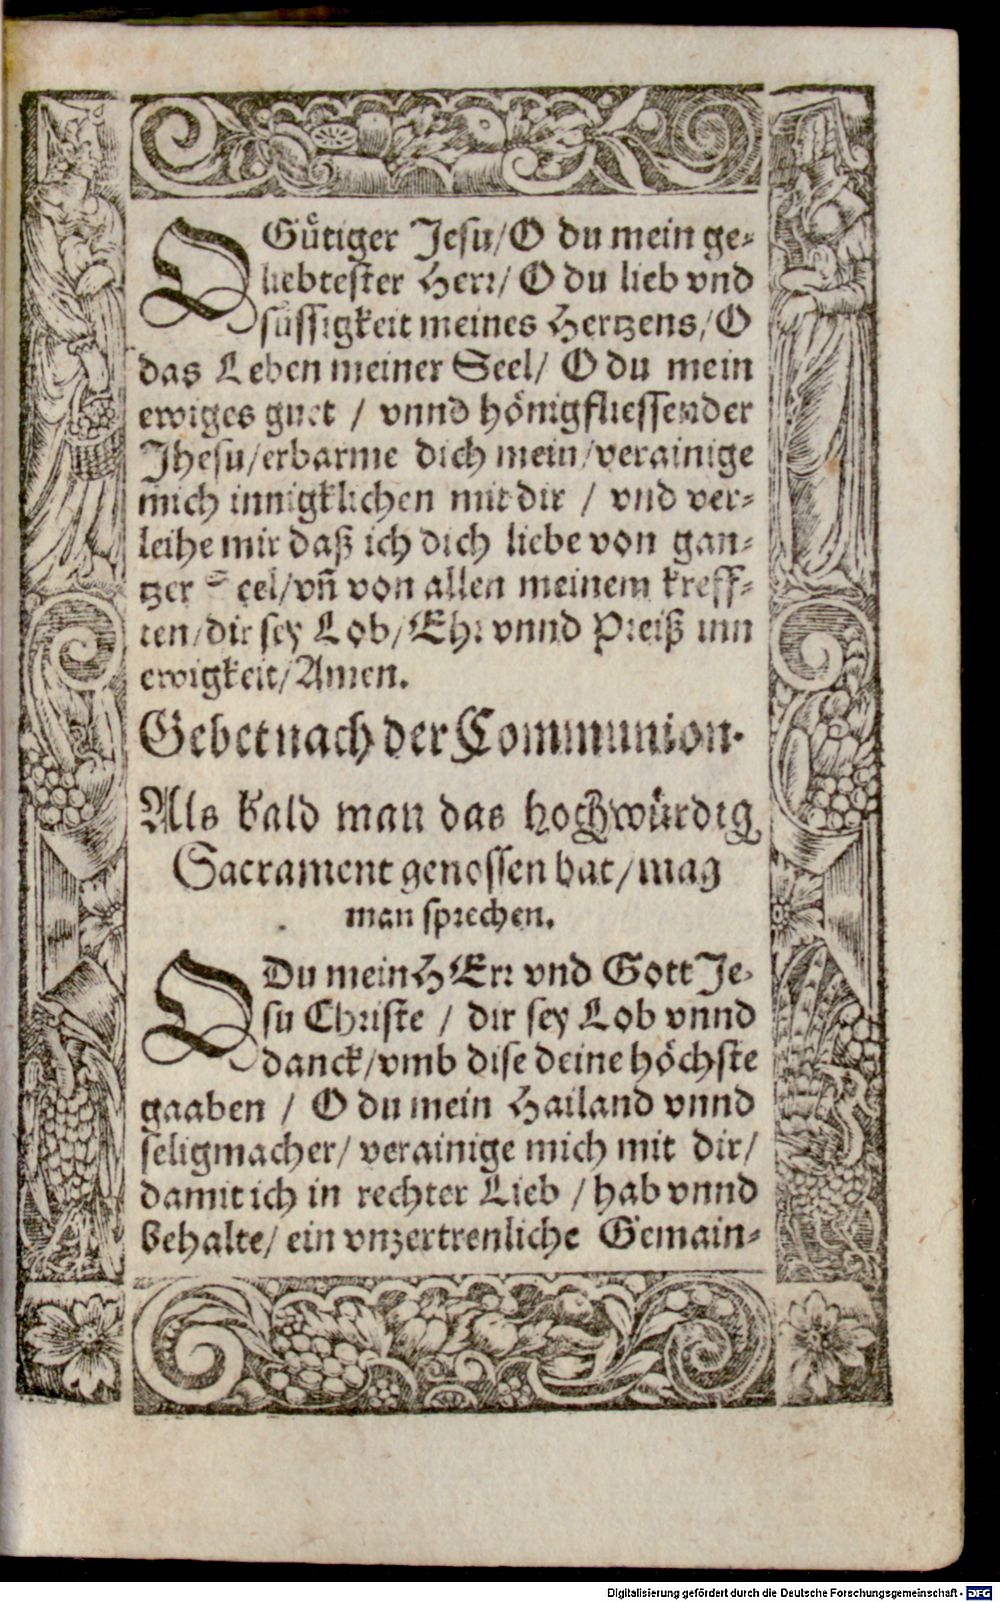 O Gütiger Jesu/ O du mein ge-
liebtester Herr/ O du lieb vnd
süssigkeit meines Hertzens/ O
das Leben meiner Seel/ O du mein
ewiges guet / vnnd hönigfliessender
Jhesu/erbarme dich mein/verainige
mich innigklichen mit dir / vnd ver-
leihe mir daß ich dich liebe von gan-
tzer Seel/vñ von allen meinem kreff-
ten/dir sey Lob/Ehr vnnd Preiß inn
ewigkeit/Amen.
Gebet nach der Communion.
Als bald man das hochwürdig
Sacrament genossen hat/mag
man sprechen.
O Du mein HErr vnd Gott Je-
su Christe / dir sey Lob vnnd
danck/vmb dise deine höchste
gaaben / O du mein Hailand vnnd
seligmacher/ verainige mich mit dir/
damit ich in rechter Lieb /hab vnnd
behalte/ ein vnzertrenliche Gemain-
Digitalisierung gefördert durch die Deutsche Forschungsgemeinschaft - DFG